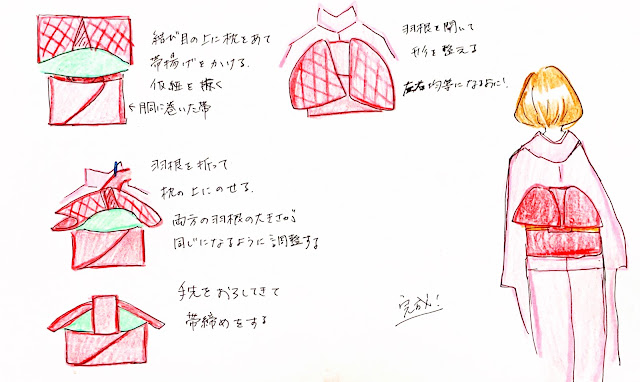 結び目の上に枕をあて
帯揚げをかける。
仮紐を解く
←胴に巻いた帯
羽根を折って
枕の上にのせる。
両方の羽根の大きさが
同じになるように調整する
手先をおろしてきて
帯締めをする
羽根を開いて
形を整える
左右均等になるように!
完成!